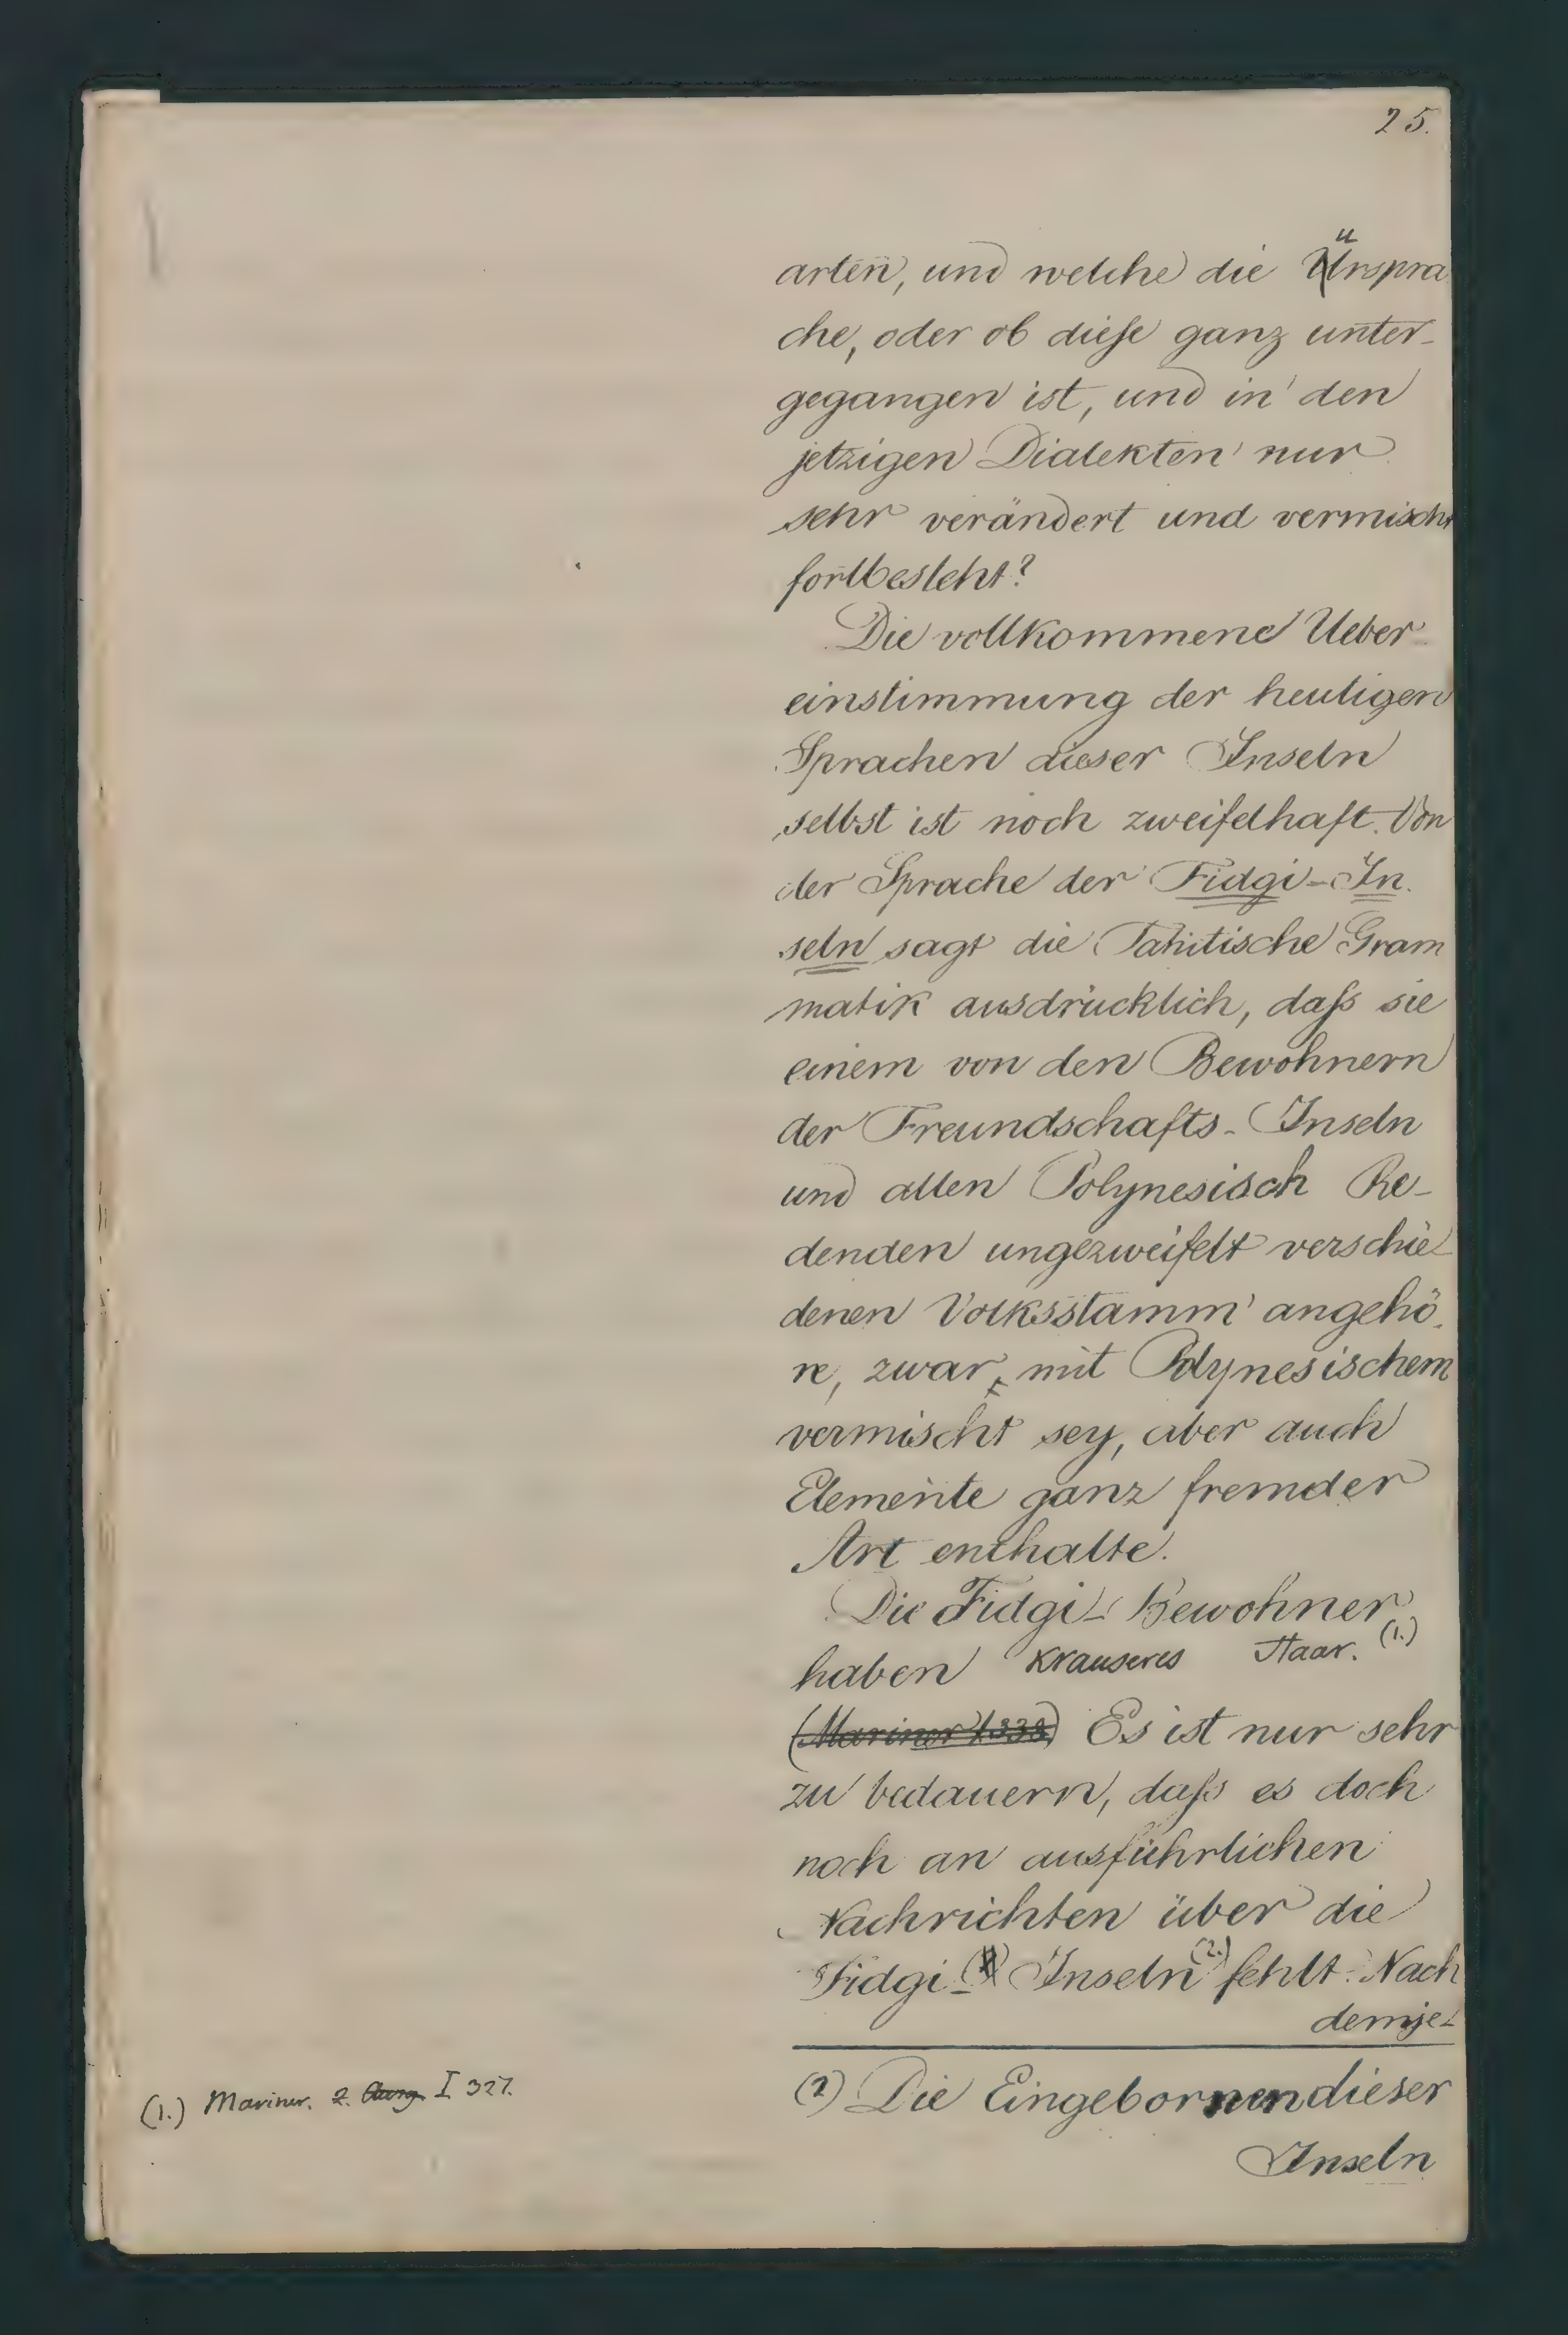 25.
arten, und welche die Urspra
che, oder ob diese ganz unter-
gegangen ist, und in den
jetzigen Dialekten nur
sehr verändert und vermischt
fortbesteht?
Die vollkommene Ueber-
einstimmung der heutigen
Sprachen dieser Inseln
selbst ist noch zweifelhaft. Von
der Sprache der Fidgi-In-
seln sagt die Tahitische Gram
matik ausdrücklich, daß sie
einem von den Bewohnern
der Freundschafts-Inseln
und allen Polynesisch Re-
denden ungezweifelt verschie-
denen Volksstamm angehö-
re, zwar mit Polynesischem
vermischt sey, aber auch
Elemente ganz fremder
Art enthalte.
Die Fidgi-Bewohner
haben krauseres Haar. (1.)
(Mariner I. 333) Es ist nur sehr
zu bedauern, daß es doch
noch an ausführlichen
Nachrichten über die
Fidgi-Inseln (2.) fehlt. Nach
demje-
(1.) Mariner. 2. I 327.
(2) Die Eingebornen dieser
Inseln